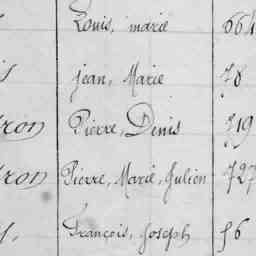 Louis, marie 664
jean, Marie 78
Pierre, Denis 319
Pierre, Marie, Julien 727
François, Joseph 56